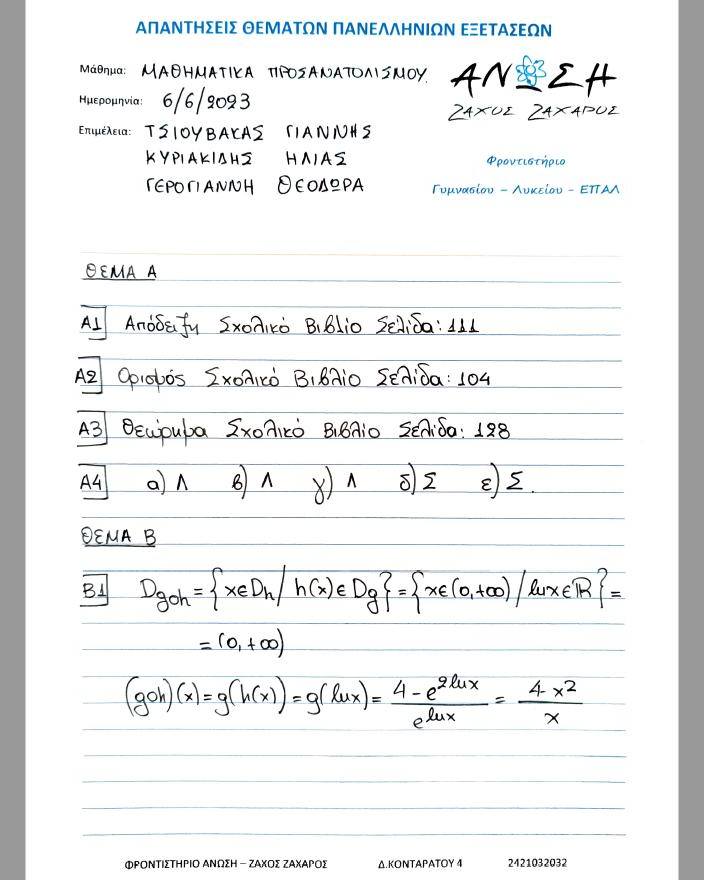 ΑΠΑΝΤΗΣΕΙΣ ΘΕΜΑΤΩΝ ΠΑΝΕΛΛΗΝΙΩΝ ΕΞΕΤΑΣΕΩΝ
Μάθημα: ΜΑΘΗΜΑΤΙΚΑ ΠΡΟΣΑΝΑΤΟΛΙΣΜΟΥ.
Ημερομηνία: 6/6/2023
Επιμέλεια: ΤΣΙΟΥΒΑΚΑΣ ΓΙΑΝΝΗΣ
ΚΥΡΙΑΚΙΔΗΣ ΗΛΙΑΣ
ΓΕΡΟΓΙΑΝΝΗ ΘΕΟΔΩΡΑ
ΑΝΩΣΗ
ΖΑΧΟΣ ΖΑΧΑΡΟΣ
Φροντιστήριο
Γυμνασίου – Λυκείου - ΕΠΑΛ
ΘΕΜΑ Α
Α1 Απόδειξη Σχολικό Βιβλίο Σελίδα: 111
Α2 Ορισμός Σχολικό Βιβλίο Σελίδα: 104
Α3 Θεώρημα Σχολικό Βιβλίο Σελίδα: 128
Α4 α) Λ β) Λ γ) Λ δ) Σ ε) Σ.
ΘΕΜΑ Β
Β1 Dgoh = {x∈Dh / h(x)∈Dg} = {x∈(0,+∞) / lnx∈ℝ} =
= (0,+∞)
(goh)(x) = g(h(x)) = g(lnx) = (4-e^(2lnx))/(e^(lnx)) = (4-x²)/x
ΦΡΟΝΤΙΣΤΗΡΙΟ ΑΝΩΣΗ – ΖΑΧΟΣ ΖΑΧΑΡΟΣ Δ.ΚΟΝΤΑΡΑΤΟΥ 4 2421032032